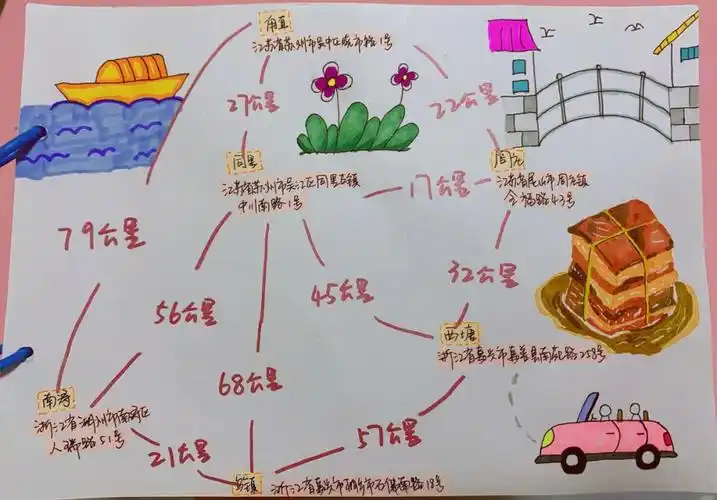 甪直
江苏省苏州市吴中区晓市路1号
27公里
22公里
同里
江苏省苏州市吴江区同里古镇
中川南路1号
17公里
周庄
江苏省昆山市周庄镇
全福路43号
79公里
56公里
45公里
32公里
西塘
浙江省嘉兴市嘉善县南苑路258号
68公里
南浔
浙江省湖州市南浔区
人瑞路51号
21公里
57公里
乌镇
浙江省嘉兴市桐乡市石佛南路18号